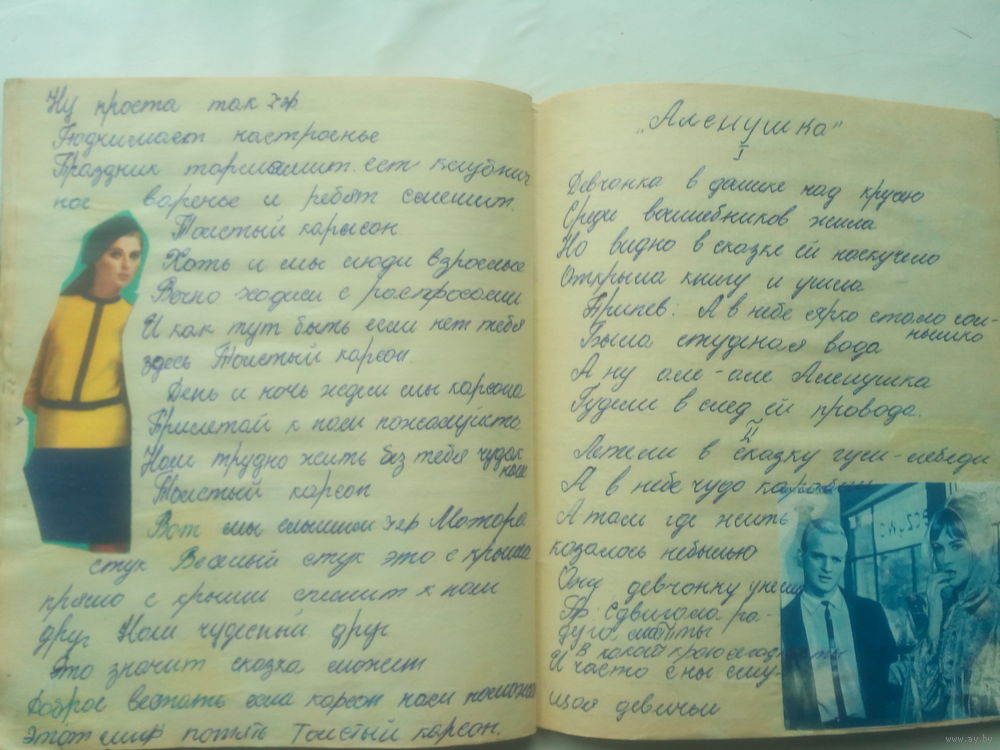 Ну проста так хар
Поднимает настроенье
Праздник тармашит. ест клубнич
ное варенье и ребят смешит.
Толстый карлсон
Хоть и мы люди взрослые
Вечно ходим с распросами
И как тут быть если нет тебя
здесь Толстый карлсон.
День и ночь ждем мы карлсона
Прилетай к нам пожалуйсто
Нам трудно жить без тебя чудак
наш
Толстый карлсон
Вот мы слышим хар Мотора
стук Веселый стук это с крыши
прямо с крыши спешит к нам
друг Нам чудесный друг
Это значит сказка может
Доброе вести карлсон нам
этот Толстый карлсон.
„Аленушка"
I
Девчонка в домике над кручею
Среди волшебников жила
Но видно в сказке ей наскучило
Открыла книгу и ушла
Припев: А в небе ярко стало сол-
нышко
Была студеная вода
А ну але-але Аленушка
Гудели в след ей провода.
II
Летели в сказку гуси-лебеди
А в небе чудо
А там где жить
казалось небылью
Они девчонку
Пр: Сдвигала ра-
дуга мосты
И в какой
И часто сны сму-
щая девичьи
www.ay.by